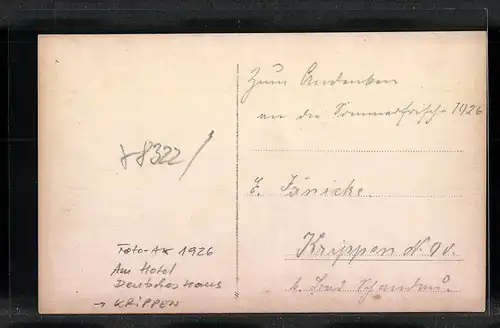 Zum Andenken
an die Sommerfrische 1926
E. Jänicke.
Krippen N° 90.
b. Bad Schandau.
*8322/
Foto-AK 1926
Am Hotel
Deutsches Haus
→ KRIPPEN